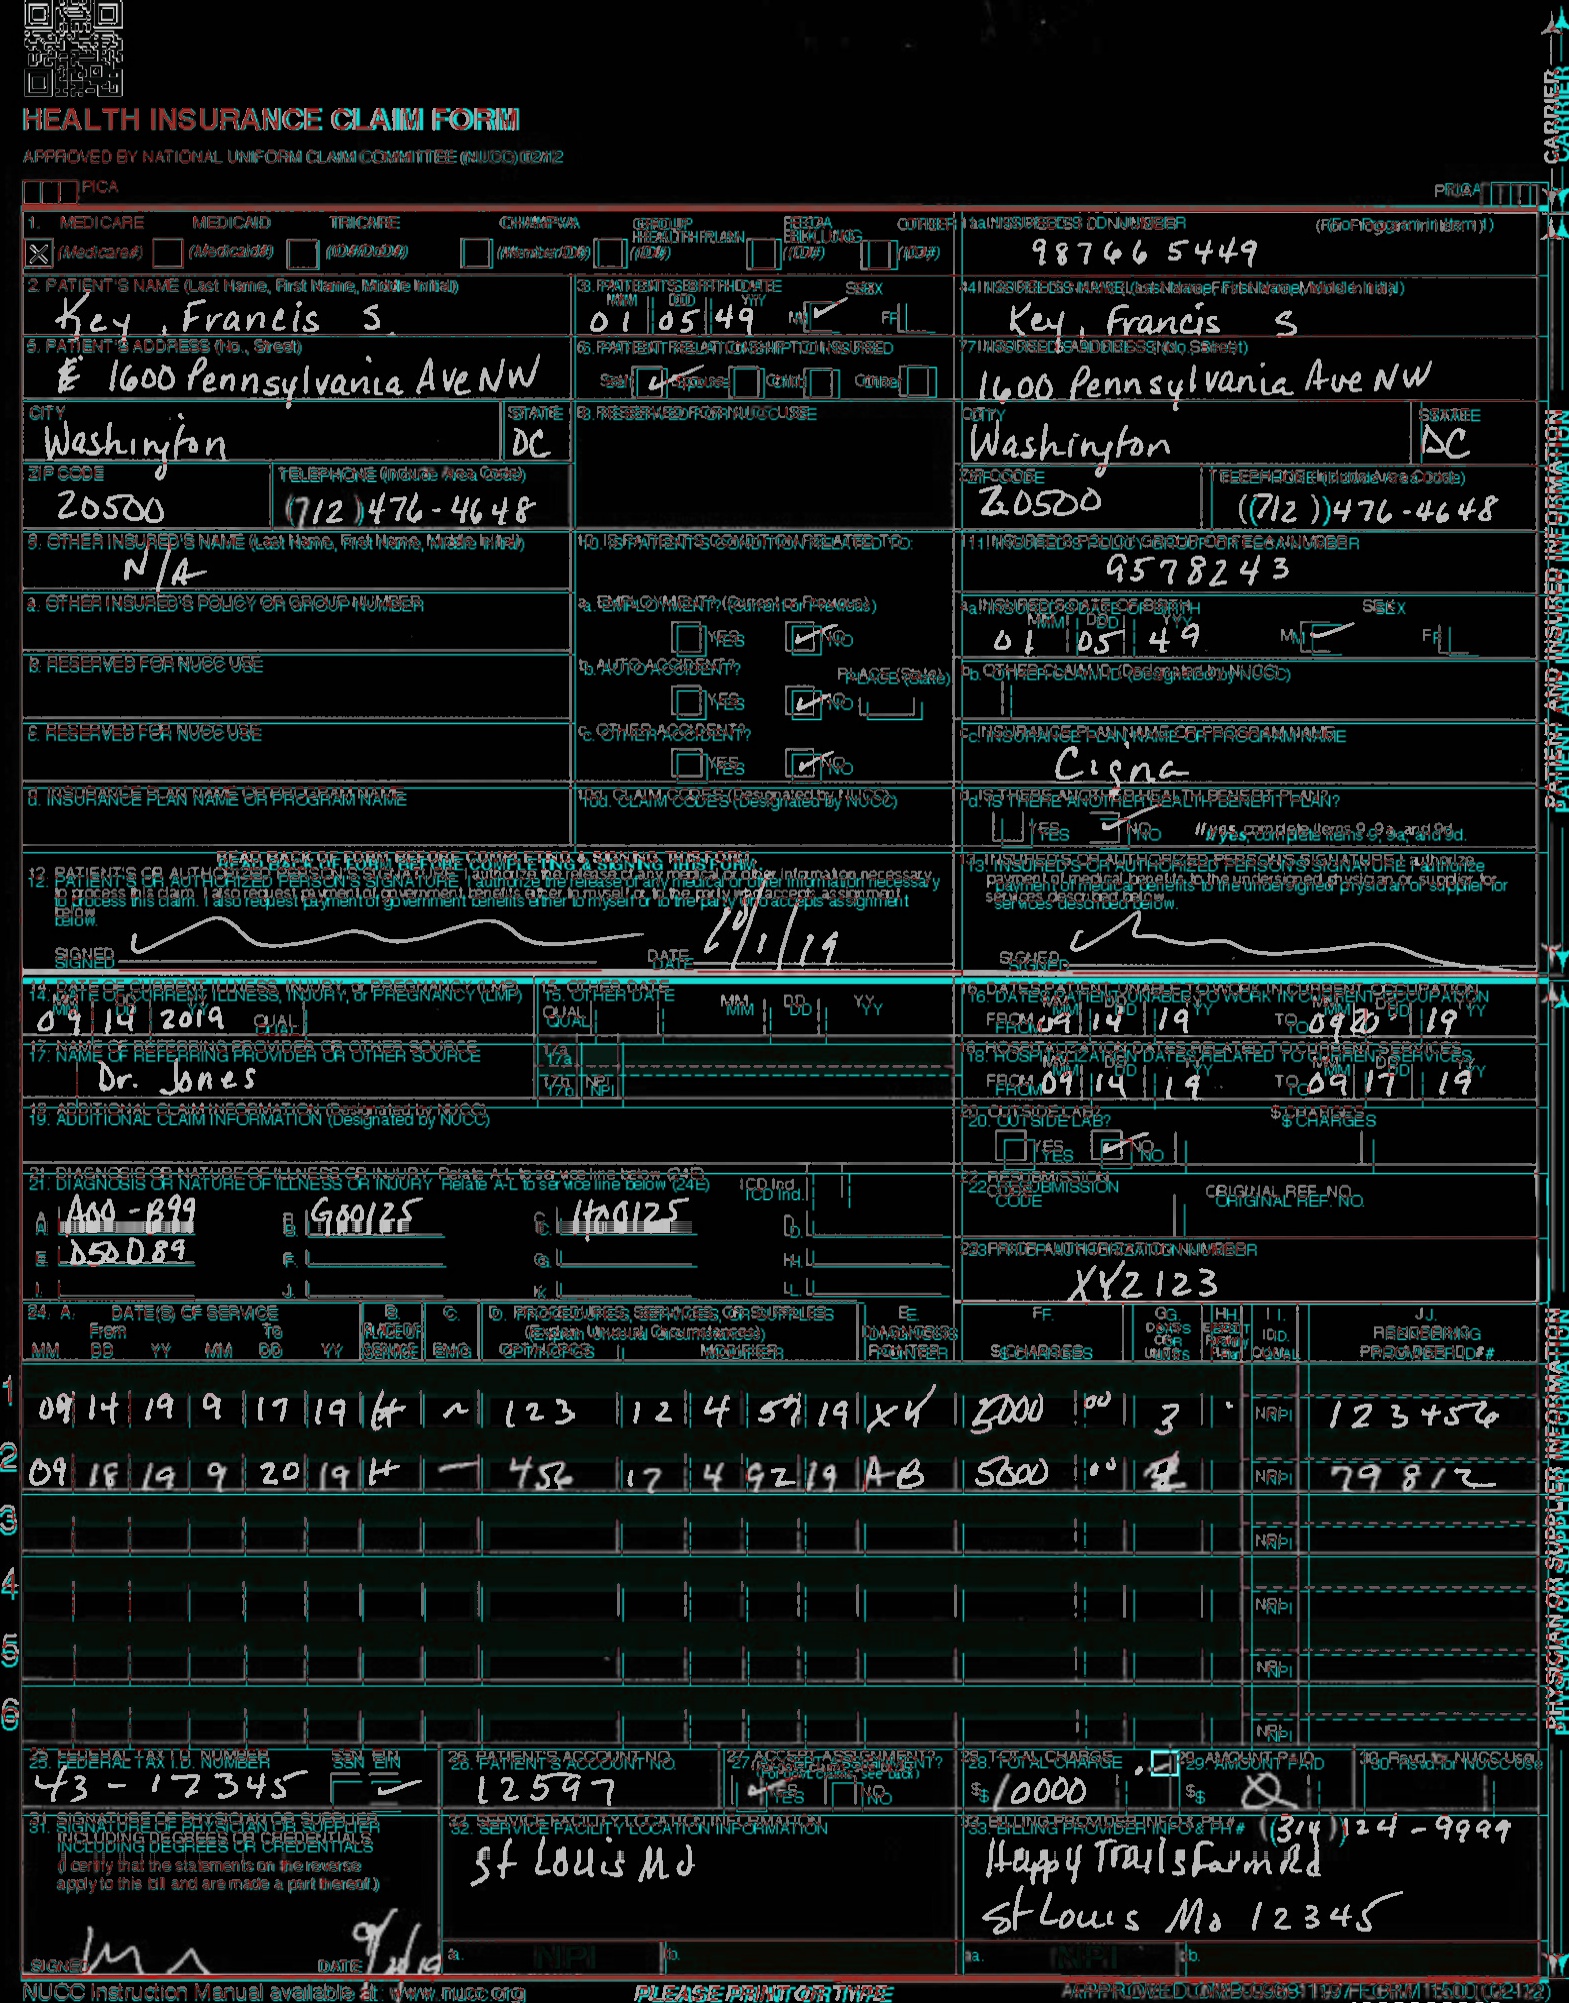 HEALTH INSURANCE CLAIM FORM
APPROVED BY NATIONAL UNIFORM CLAIM COMMITTEE (NUCC) 02/12
PICA
PICA
CARRIER
1. MEDICARE MEDICAID TRICARE CHAMPVA GROUP HEALTH PLAN FECA BLK LUNG OTHER
(Medicare#) (Medicaid#) (ID#/DoD#) (Member ID#) (ID#) (ID#) (ID#)
1a. INSURED'S I.D. NUMBER (For Program in Item 1)
98766 5449
2. PATIENT'S NAME (Last Name, First Name, Middle Initial)
Key, Francis S.
3. PATIENT'S BIRTH DATE SEX
MM DD YY
01 05 49 M F
4. INSURED'S NAME (Last Name, First Name, Middle Initial)
Key, Francis S
5. PATIENT'S ADDRESS (No., Street)
1600 Pennsylvania Ave NW
6. PATIENT RELATIONSHIP TO INSURED
Self Spouse Child Other
7. INSURED'S ADDRESS (No., Street)
1600 Pennsylvania Ave NW
CITY STATE
Washington DC
8. RESERVED FOR NUCC USE
CITY STATE
Washington DC
ZIP CODE TELEPHONE (Include Area Code)
20500 (712) 476-4648
ZIP CODE TELEPHONE (Include Area Code)
20500 (712) 476-4648
9. OTHER INSURED'S NAME (Last Name, First Name, Middle Initial)
N/A
10. IS PATIENT'S CONDITION RELATED TO:
11. INSURED'S POLICY GROUP OR FECA NUMBER
9578243
a. OTHER INSURED'S POLICY OR GROUP NUMBER
a. EMPLOYMENT? (Current or Previous)
YES NO
a. INSURED'S DATE OF BIRTH SEX
MM DD YY
01 05 49 M F
b. RESERVED FOR NUCC USE
b. AUTO ACCIDENT? PLACE (State)
YES NO
b. OTHER CLAIM ID (Designated by NUCC)
c. RESERVED FOR NUCC USE
c. OTHER ACCIDENT?
YES NO
c. INSURANCE PLAN NAME OR PROGRAM NAME
Cigna
d. INSURANCE PLAN NAME OR PROGRAM NAME
10d. CLAIM CODES (Designated by NUCC)
d. IS THERE ANOTHER HEALTH BENEFIT PLAN?
YES NO If yes, complete items 9, 9a, and 9d.
PATIENT AND INSURED INFORMATION
READ BACK OF FORM BEFORE COMPLETING & SIGNING THIS FORM.
12. PATIENT'S OR AUTHORIZED PERSON'S SIGNATURE I authorize the release of any medical or other information necessary
to process this claim. I also request payment of government benefits either to myself or to the party who accepts assignment
below.
SIGNED DATE 10/1/19
13. INSURED'S OR AUTHORIZED PERSON'S SIGNATURE I authorize
payment of medical benefits to the undersigned physician or supplier for
services described below.
SIGNED
14. DATE OF CURRENT ILLNESS, INJURY, or PREGNANCY (LMP)
MM DD YY
09 14 2019 QUAL.
15. OTHER DATE
QUAL. MM DD YY
16. DATES PATIENT UNABLE TO WORK IN CURRENT OCCUPATION
MM DD YY MM DD YY
FROM 09 14 19 TO 09 20 19
17. NAME OF REFERRING PROVIDER OR OTHER SOURCE
Dr. Jones
17a.
17b. NPI
18. HOSPITALIZATION DATES RELATED TO CURRENT SERVICES
MM DD YY MM DD YY
FROM 09 14 19 TO 09 17 19
19. ADDITIONAL CLAIM INFORMATION (Designated by NUCC)
20. OUTSIDE LAB? $ CHARGES
YES NO
21. DIAGNOSIS OR NATURE OF ILLNESS OR INJURY Relate A-L to service line below (24E) ICD Ind.
A. A00-B99 B. G00125 C. H00125 D.
E. D50D89 F. G. H.
I. J. K. L.
22. RESUBMISSION CODE ORIGINAL REF. NO.
23. PRIOR AUTHORIZATION NUMBER
XYZ123
24. A. DATE(S) OF SERVICE B. C. D. PROCEDURES, SERVICES, OR SUPPLIES E. F. G. H. I. J.
From To PLACE OF SERVICE EMG (Explain Unusual Circumstances) DIAGNOSIS POINTER DAYS OR UNITS ID. QUAL. RENDERING PROVIDER ID. #
MM DD YY MM DD YY CPT/HCPCS MODIFIER $ CHARGES
1 09 14 19 9 17 19 H ~ 123 12 4 57 19 XY 5000 00 3 NPI 123456
2 09 18 19 9 20 19 H — 456 12 4 92 19 AB 5000 00 2 NPI 79812
3 NPI
4 NPI
5 NPI
6 NPI
25. FEDERAL TAX I.D. NUMBER SSN EIN
43-12345
26. PATIENT'S ACCOUNT NO.
12597
27. ACCEPT ASSIGNMENT?
(For govt. claims, see back)
YES NO
28. TOTAL CHARGE
$ 10000
29. AMOUNT PAID
$ 0
30. Rsvd for NUCC Use
31. SIGNATURE OF PHYSICIAN OR SUPPLIER
INCLUDING DEGREES OR CREDENTIALS
(I certify that the statements on the reverse
apply to this bill and are made a part thereof.)
SIGNED DATE
32. SERVICE FACILITY LOCATION INFORMATION
St Louis Mo
a. NPI b.
33. BILLING PROVIDER INFO & PH # (314) 124-9999
Happy Trails Farm Rd
St Louis Mo 12345
a. NPI b.
PHYSICIAN OR SUPPLIER INFORMATION
NUCC Instruction Manual available at: www.nucc.org
PLEASE PRINT OR TYPE